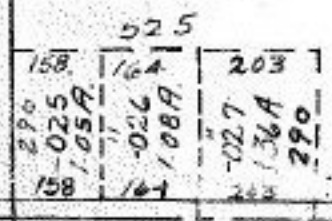 525
158
290
-025
1.05A.
158
164
"
-026
1.08A
164
203
"
-027
1.36A
290
203